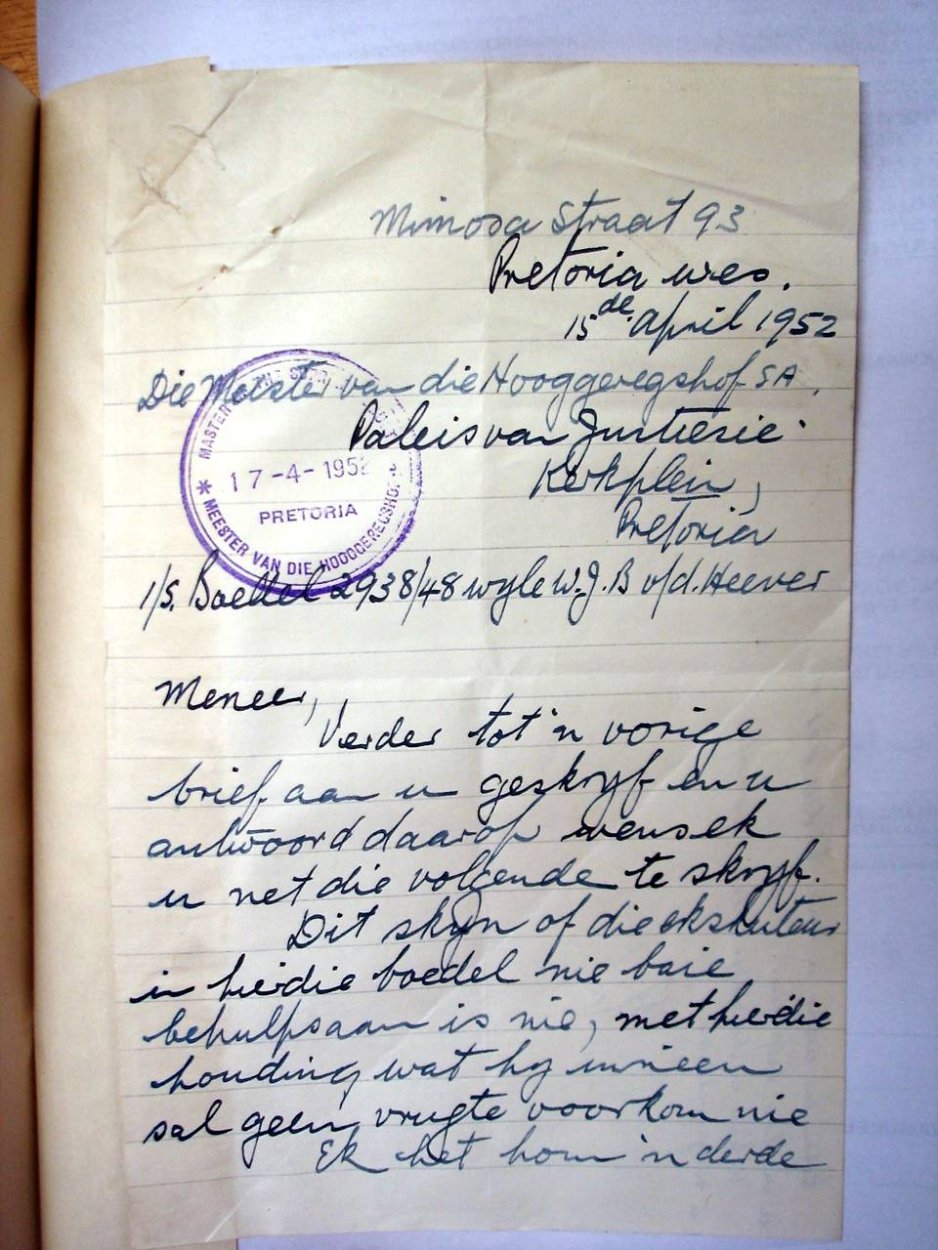 Mimosa Straat 93
Pretoria wes.
15de April 1952
Die Meester van die Hooggeregshof SA.
Paleis van Justiesie.
Kerkplein,
Pretoria
MASTER
17-4-1952
PRETORIA
* MEESTER VAN DIE HOOGGEREGSHOF
I/S. Boedel 2938/48 wyle W.J.B v/d. Heever
Meneer,
Verder tot 'n vorige
brief aan u geskryf en u
antwoord daarop wens ek
u net die volgende te skryf.
Dit skyn of die eksekuteur
in hierdie boedel nie baie
behulpsaam is nie, met hierdie
houding wat hy inneem
sal geen vrugte voorkom nie
Ek het hom 'n derde